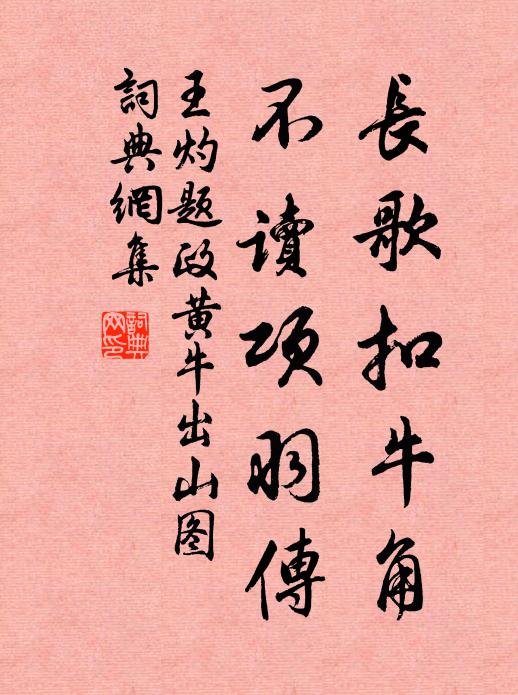 長歌扣牛角
不讀項羽傳
王灼题政黄牛出山图
詞典網集
詞典網印